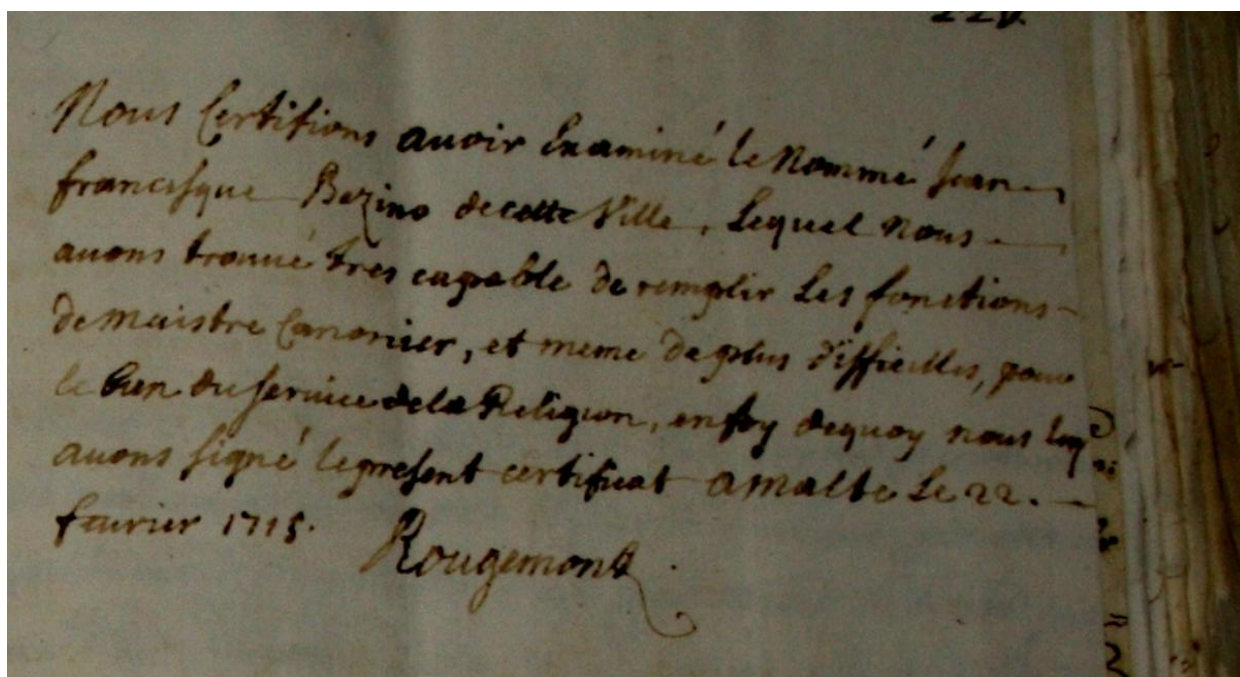 Nous Certifions auoir Examiné le Nommé Jean
francisque Bezino de cette Ville, Lequel nous
auons trouué tres capable de remplir Les fonctions
de maistre Canonier, et meme de plus difficilles, pour
le bien du seruice de la Religion, en foy dequoy nous luy
auons signé le present certificat a malte Le 22.
feurier 1715.
Rougemont